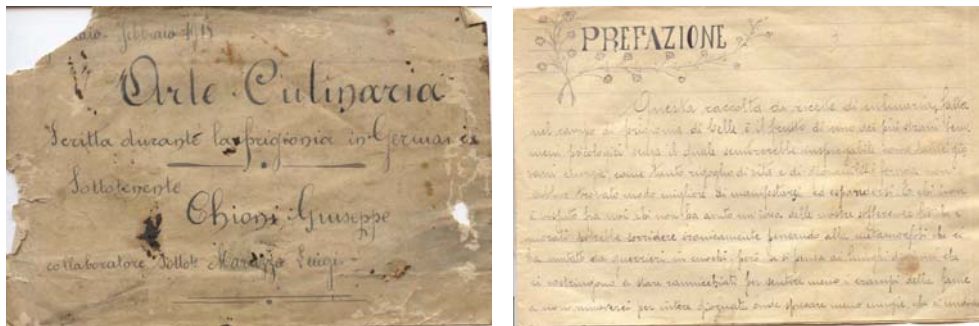 Gennaio - Febbraio
Arte Culinaria
Scritta durante la prigionia in Germania
Sottotenente
Chioni Giuseppe
collaboratore Sottot. Marazza Luigi
PREFAZIONE
Questa raccolta di ricette di culinaria, fatta
nel campo di prigionia di Celle, è il frutto di uno dei più strani feno=
meni psicologici, senza il quale sembrerebbe inspiegabile come tante gio=
vani energie, come tanto rigoglio di vita e di
trovato modo migliore di manifestarsi ed espandersi. Chi non
è vissuto tra noi, chi non ha avuto un'idea delle nostre sofferenze
morali potrebbe sorridere ironicamente pensando alla metamorfosi che ci
ha mutati da guerrieri in cuochi; però la si pensa ai lunghi digiuni che
ci costringono a stare rannicchiati per sentire meno i crampi della fame
a non muoversi per intere giornate onde sprecare meno energie, che